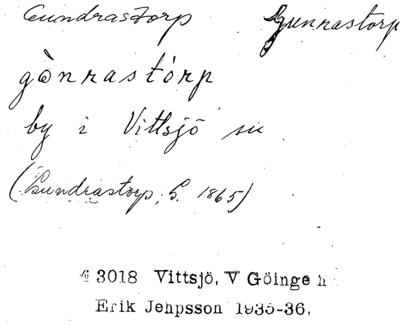 Gundrastorp Gunnastorp
gònnastórp
by i Vittsjö sn
(Gundrastorp, G. 1865)
3018 Vittsjö, V Göinge h
Erik Jeppsson 1935-36.